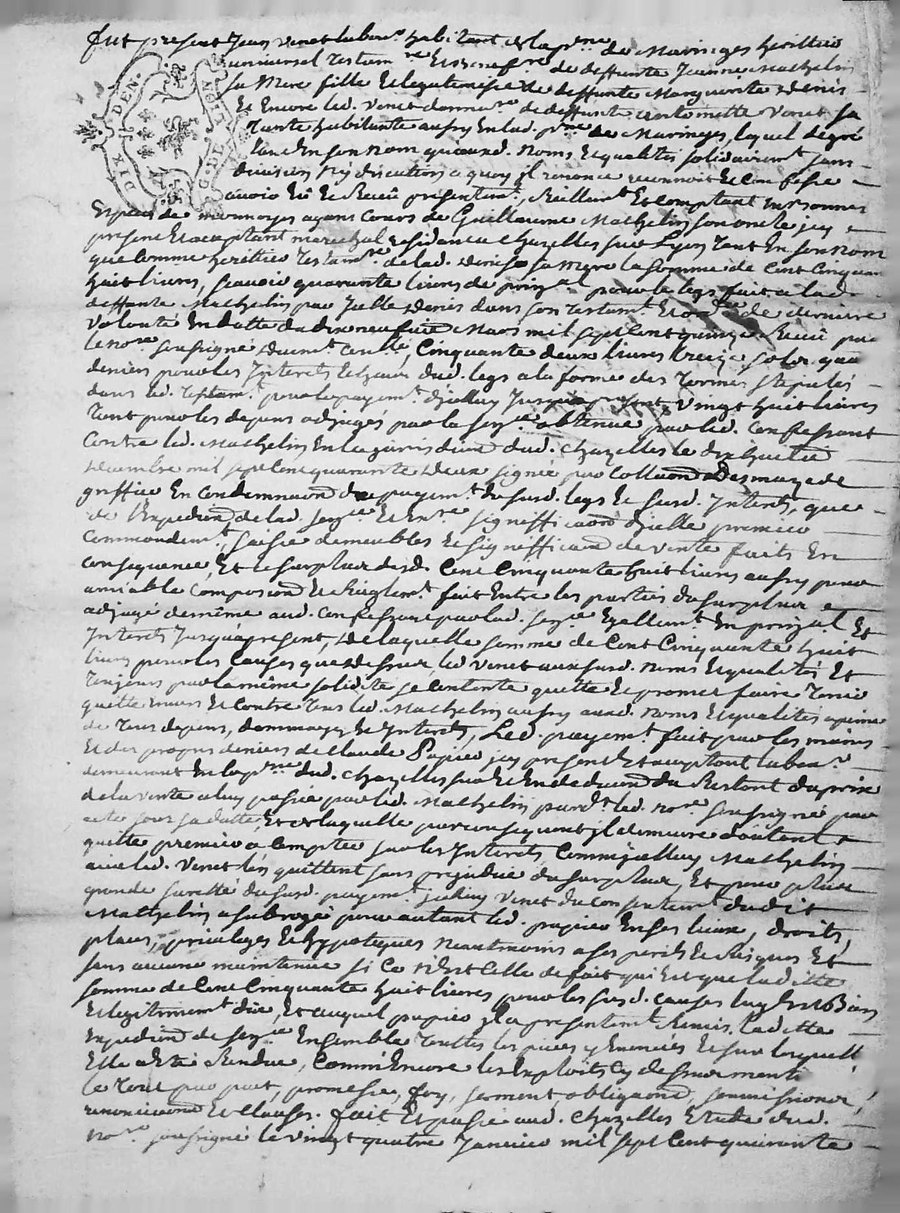 fut present Jean Venet labou.r habitant de la p.sse de Maringes heritier
universel testam.re et benef.re de deffunte Jeanne Mathelin
sa Mere fille et legataire de deffunte Marguerite Denis
Et Encore led. Venet donna.re de deffunte Antoinette Venet sa
Tante habitante aussy En lad. p.sse de Maringes, lequel de gré
tant En son nom qu'auxd. Noms et qualités solidairem.t sans
division Ny discution a quoy il renonce reconnoit et Confesse
avoir Eû et Receû présentem.t, Réellem.t Et comptant En bonnes
Espèces de monnoyes ayant Cours de Guillaume Mathelin son oncle icy
présent Et acceptant marechal residant a Chazelles sur Lyon tant En son Nom
que Comme heritier testam.re de lad. Denis sa Mere la somme de Cent Cinquante
huit livres, sçavoir quarante livres de prin.al pour le legs fait a lad.
deffunte Mathelin par Jcelle Denis dans son Testam.t Et ord.ce de derniere
Volonté En datte du dix neuf Mars mil sept Cent quinze Receû par
le No.re soussigné duem.t Con.lé, Cinquante deux livres treize sols
deniers pour les Interets dud. legs a la forme des Termes stipulés
dans led. Testam.t pour le payem.t d'jceluy jusqu'a présent, Vingt huit livres
tant pour les depens adjugés par la Sen.ce obtenue par led. Confessant
Contre led. Mathelin En la jurisdiction dud. Chazelles le dix huit
decembre mil sept Cent quarante deux signée par Collation Desmazede
greffier En Condemnaon du payem.t dusud. legs et susd. Interets, que
de l'Expedition de lad. Sen.ce et signifficaon d'jcelle premier
Commandem.t, saisie de meubles Et signifficaon de vente faits En
Consequence, Et le surplus desd. Cent Cinquante huit livres aussy pour
amiable Composion Et Reiglem.t fait Entre les parties du surplus
adjugé de même aud. Confessant par lad. Sen.ce Exellant En prin.al Et
Interets Jusqu'a présent, de laquelle somme de Cent Cinquante huit
livres pour les Causes que dessus, led. Venet aux susd. Noms Et qualités Et
toujours par la même solidité se Contente quitte Et promet faire Tenir
quitte Envers Et Contre Tous led. Mathelin aussy auxd. Noms Et qualités a peine
de Tous depens, dommages Et Interets, Led. payem.t fait par les mains
Et des propres deniers de Claude Papier icy present Et acceptant labou.r
demeurant En la p.sse dud. Chazelles sur Et En deduction du Restant du prix
de la vente a luy passée par led. Mathelin pard.t led. No.re soussigné par
acte sous sa datte, Et de laquelle par consequent il demeure d'autant
quitte premier a Compte sur les Interets, Comme jceluy Mathelin
avec led. Venet l'en quittent sans prejudice du surplus, Et pour plus
grande sureté dusd. payem.t jceluy Venet du Consentem.t dudit
Mathelin a subrogé pour autant led. papier En ses lieux, droits,
places, privileges Et hypoteques Neantmoins a ses perils Et Risques Et
sans aucune maintenue si Ce N'est Celle de fait qui Est que laditte
somme de Cent Cinquante huit livres pour les susd. Causes luy Est Bien
Et legitimem.t due, Et auquel papier il a presentem.t Remis ladite
Expedition de Sen.ce Ensemble Toutes les pieces y Enoncées Et sur lesquell
Elle a Eté Rendue, Comme Encore les Exploits Cy dessus mentio
le Tout par pact, promesse, foy, serment obligaond, soumissions,
renonciaons Et Clauses. fait Et passé aud. Chazelles Etude dud.
No.re soussigné le vingt quatre Janvier mil sept Cent quarante